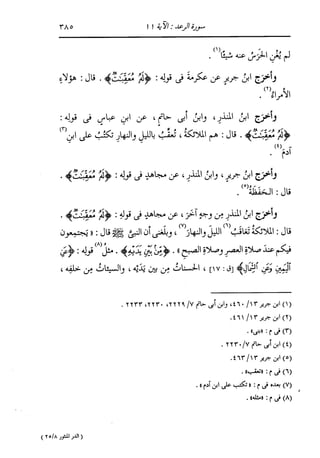 سورة الرعد : الآية ١١
٣٨٥
لم يُغْنِ الحَرَسُ عنه شيئًا(١).
وأخرَج ابنُ جريرٍ عن عكرمةَ فى قولِه : ﴿لَهُ مُعَقِّبَتٌ﴾ . قال : هؤلاء
الأمراءُ(٢).
وأخرَج ابنُ المنذرِ ، وابنُ أبى حاتمٍ ، عن ابنِ عباسٍ فى قولِه :
﴿لَهُ مُعَقِّبَتٌ﴾ . قال : هم الملائكةُ ، تُعقِّبُ بالليلِ والنهارِ تكتُبُ على ابنِ(٣)
آدمَ(٤).
وأخرَج ابنُ جريرٍ ، وابنُ المنذرِ ، عن مجاهدٍ فى قولِه : ﴿لَهُ مُعَقِّبَتٌ﴾ .
قال : الحفَظةُ(٥).
وأخرَج ابنُ المنذرِ مِن وجهٍ آخرَ ، عن مجاهدٍ فى قولِه : ﴿لَهُ مُعَقِّبَتٌ﴾ .
قال : الملائكةُ تَعاقَبُ(٦) الليلَ والنهارَ(٧) ، وبلَغنى أن النبىَّ ﷺ قال : « يَجتمعون
فيكم عندَ صلاةِ العصرِ وصلاةِ الصبحِ » . ﴿مِنْ بَيْنِ يَدَيْهِ﴾ . مثلُ(٨) قولِه : ﴿عَنِ
الْيَمِينِ وَعَنِ الشِّمَالِ﴾ [ق : ١٧] ، الحسناتُ مِن بينِ يدَيْه ، والسيئاتُ مِن خلفِه ،
(١) ابن جرير ١٣/ ٤٦٠، وابن أبى حاتم ٧/ ٢٢٢٩، ٢٢٣٠، ٢٢٣٣ .
(٢) ابن جرير ١٣/ ٤٦١.
(٣) فى م : «بنى» .
(٤) ابن أبى حاتم ٧/ ٢٢٣٠ .
(٥) ابن جرير ١٣/ ٤٦٣.
(٦) فى م : «تعقب» .
(٧) بعده فى م : «تكتب على ابن آدم» .
(٨) فى م : «مثله» .
( الدر المنثور ٢٥/٨ )